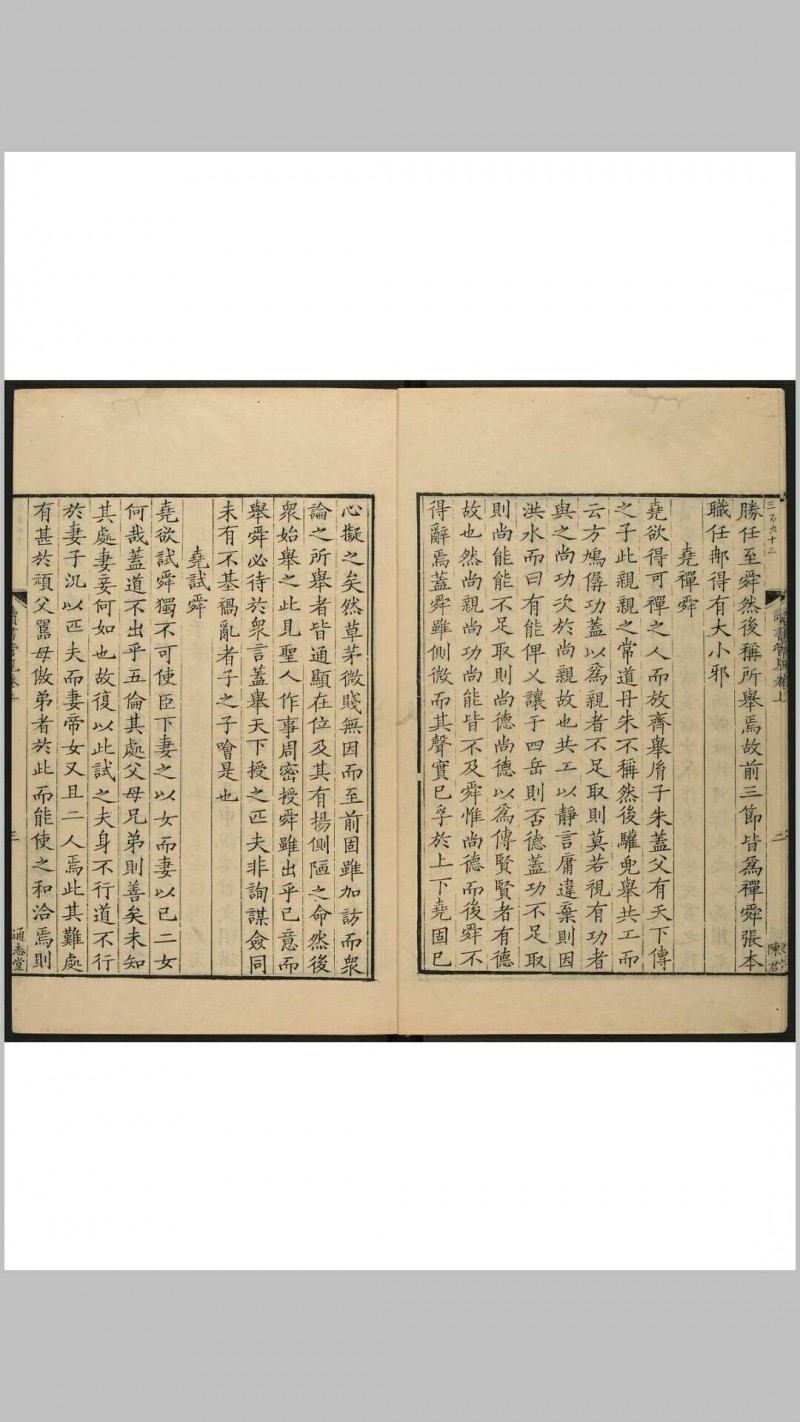 勝任至舜然後稱所舉焉故前三節皆爲禪舜張本
職任那得有大小邪
堯禪舜
堯欲得可禪之人而放齊舉胤子朱蓋父有天下傳
之子此親親之常道丹朱不稱然後驩兜舉共工而
云方鳩僝功蓋以爲親者不足取則莫若視有功者
與之尚功次於尚親故也共工以靜言庸違棄則因
洪水而曰有能俾乂讓于四岳則否德蓋功不足取
則尚能能不足取則尚德尚德以爲傳賢賢者有德
故也然尚親尚功尚能皆不及舜惟尚德而後舜不
得辭焉蓋舜雖側微而其聲實已孚於上下堯固已
二
陳君
心擬之矣然草茅微賤無因而至前固雖加訪而衆
論之所舉者皆通顯在位及其有揚側陋之命然後
衆始舉之此見聖人作事周密授舜雖出乎已意而
舉舜必待於衆言蓋舉天下授之匹夫非詢謀僉同
未有不基禍亂者子之子噲是也
堯試舜
堯欲試舜獨不可使臣下妻之以女而妻以已二女
何哉蓋道不出乎五倫其處父母兄弟則善矣未知
其處妻妾何如也故復以此試之夫身不行道不行
於妻子況以匹夫而妻帝女又且二人焉此其難處
有甚於頑父嚚母傲弟者於此而能使之和洽焉則
三
通志堂